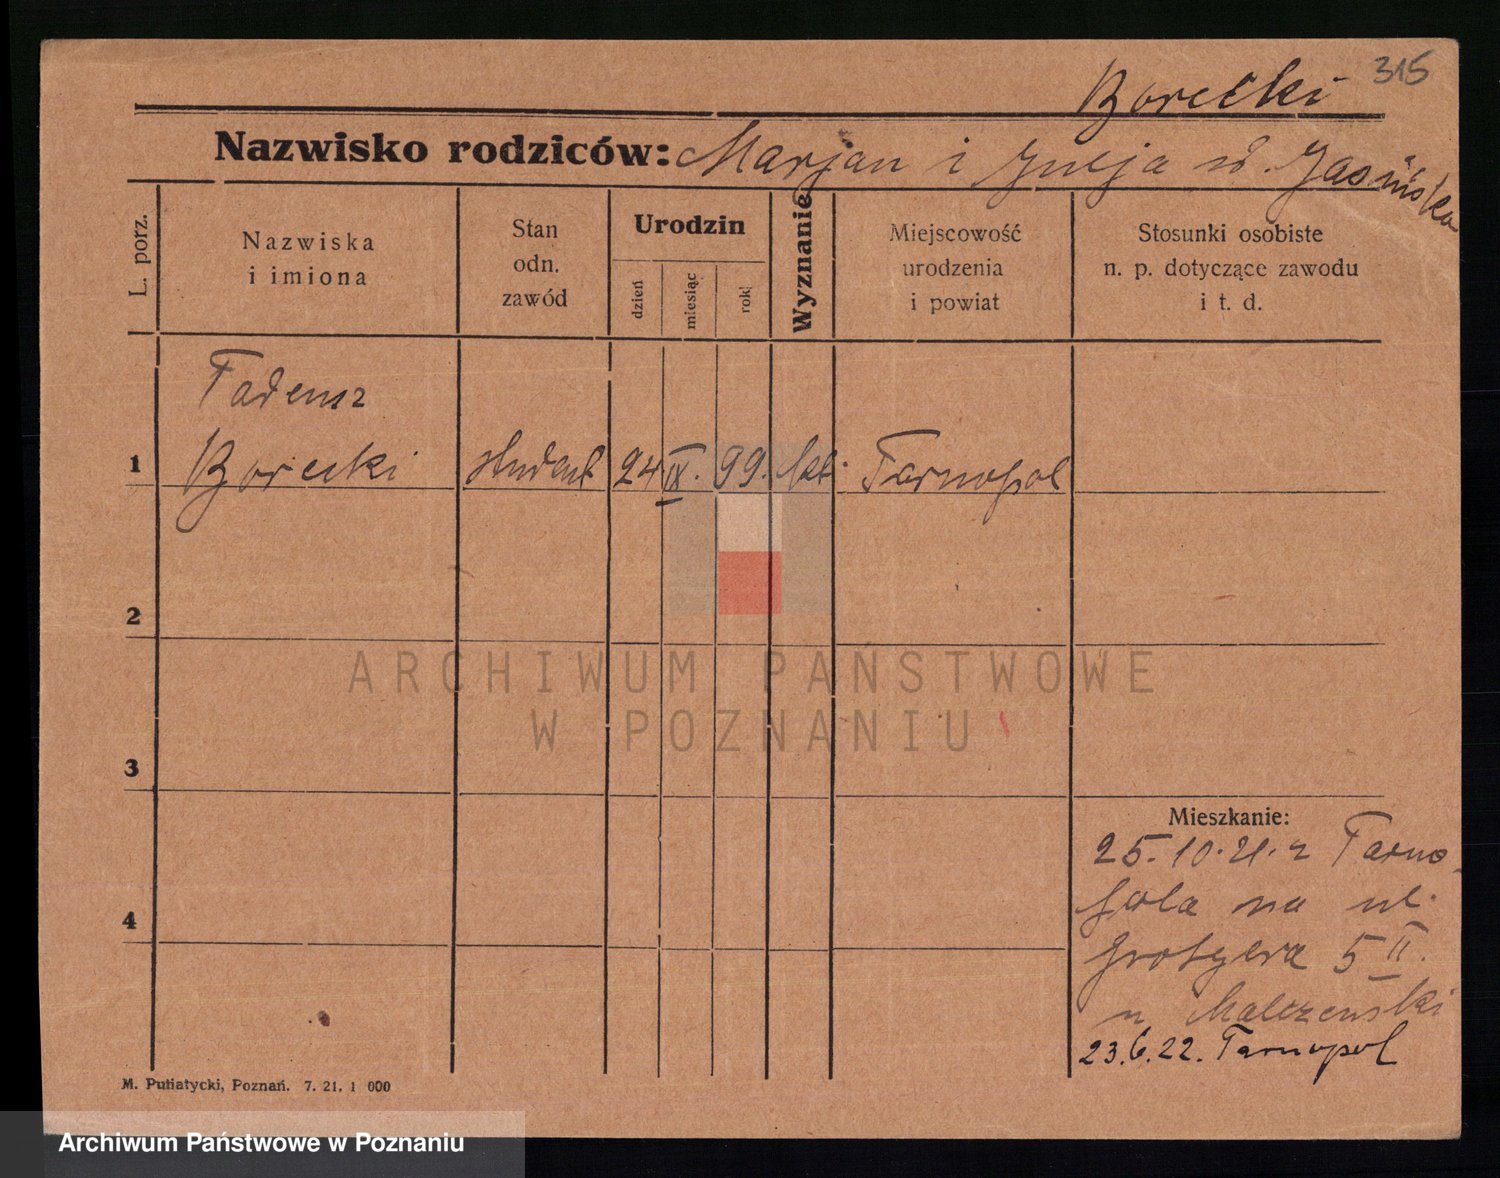 315
Borecki
Nazwisko rodziców: Marjan i Julja ur. Jasińska
L. porz.
Nazwiska
i imiona
Stan
odn.
zawód
Urodzin
dzień
miesiąc
rok
Wyznanie
Miejscowość
urodzenia
i powiat
Stosunki osobiste
n. p. dotyczące zawodu
i t. d.
Tadeusz
1 Borecki student 24 IX. 99. kt. Tarnopol
2
3
4
Mieszkanie:
25.10.21. z Tarno
pola na ul.
5 II.
u Malczewski
23.6.22. Tarnopol
M. Putiatycki, Poznań. 7. 21. 1 000
ARCHIWUM PAŃSTWOWE
W POZNANIU
Archiwum Państwowe w Poznaniu